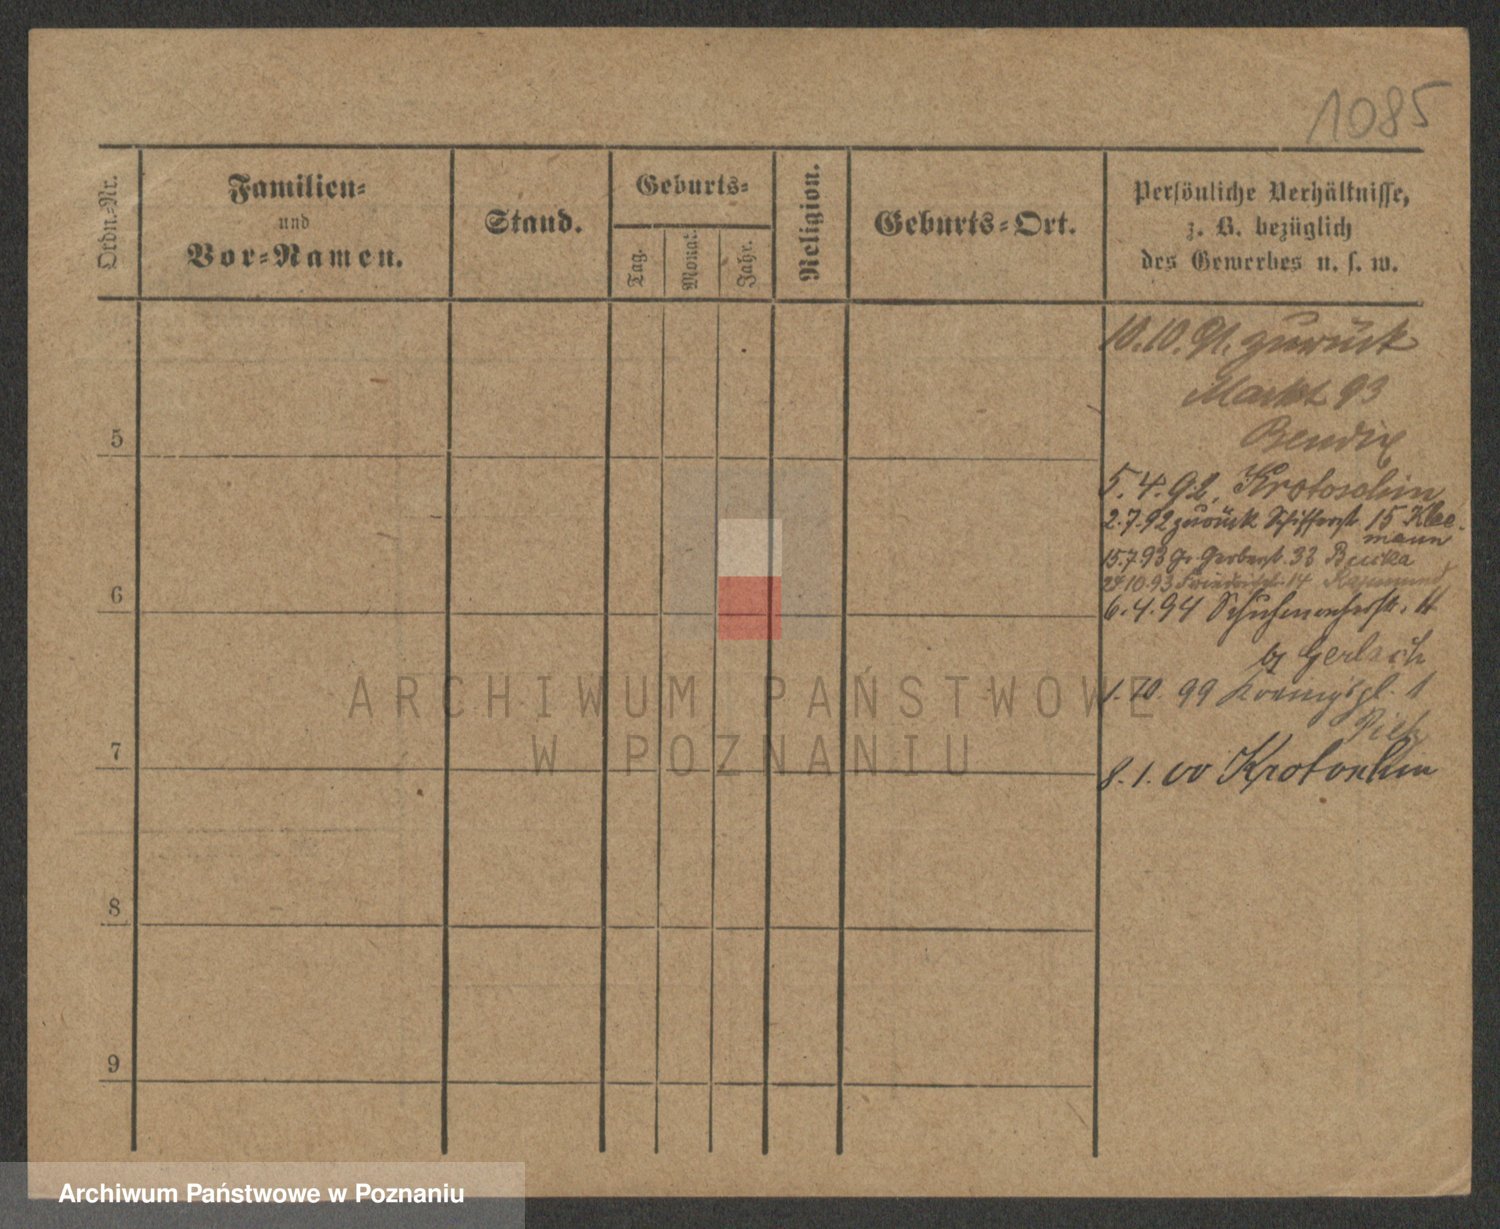 1085
Ordn.-Nr.
Familien-
und
Vor-Namen.
Stand.
Geburts-
Tag.
Monat.
Jahr.
Religion.
Geburts-Ort.
Persönliche Verhältnisse,
z. B. bezüglich
des Gewerbes u. s. w.
10.10.91. zurück
Markt 93
Bendix
5
5.4.92. Krotoschin
2.7.92 zurück Schifferstr. 15 Klee-
mann
15.7.93 Gr. Gerberst. 33
24.10.93 14
6
6.4.94
b/ Gerlach
1.10.99 Koenigspl. 1
7
8.1.00 Krotoschin
8
9
ARCHIWUM PAŃSTWOWE
W POZNANIU
Archiwum Państwowe w Poznaniu